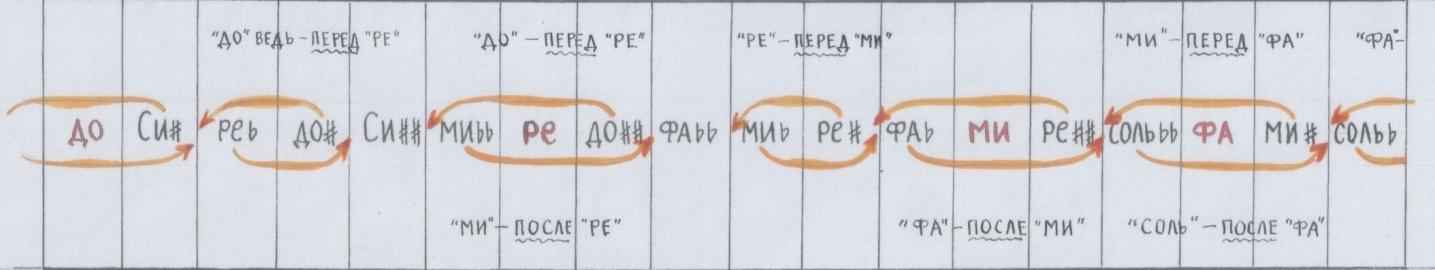 "ДО" ВЕДЬ – ПЕРЕД "РЕ" "ДО" – ПЕРЕД "РЕ" "РЕ" – ПЕРЕД "МИ" "МИ" – ПЕРЕД "ФА" "ФА" –
ДО СИ# РЕb ДО# СИ## МИbb РЕ ДО## ФАbb МИb РЕ# ФАb МИ РЕ## СОЛЬbb ФА МИ# СОЛЬb
"МИ" – ПОСЛЕ "РЕ" "ФА" – ПОСЛЕ "МИ" "СОЛЬ" – ПОСЛЕ "ФА"